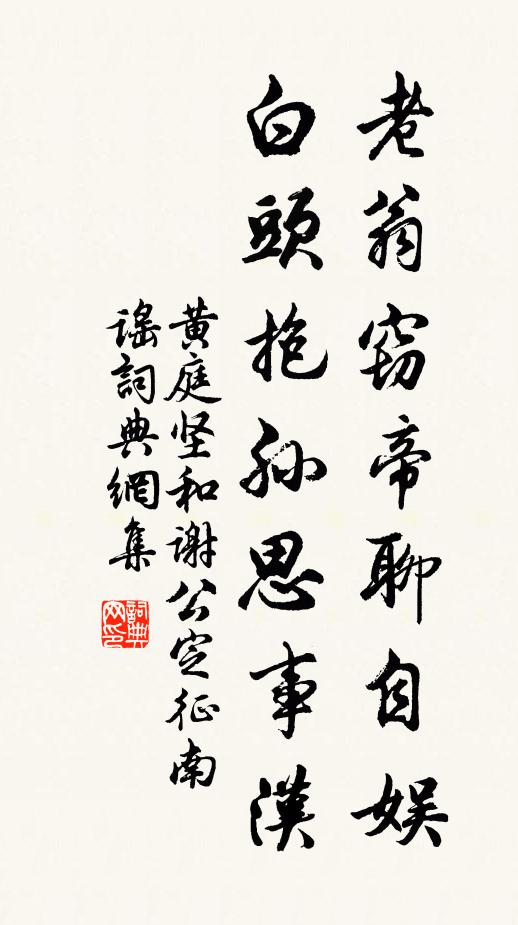 老翁竊帝聊自娛
白頭抱孫思事漢
黄庭坚和谢公定征南
謠詞典網集
詞典网印